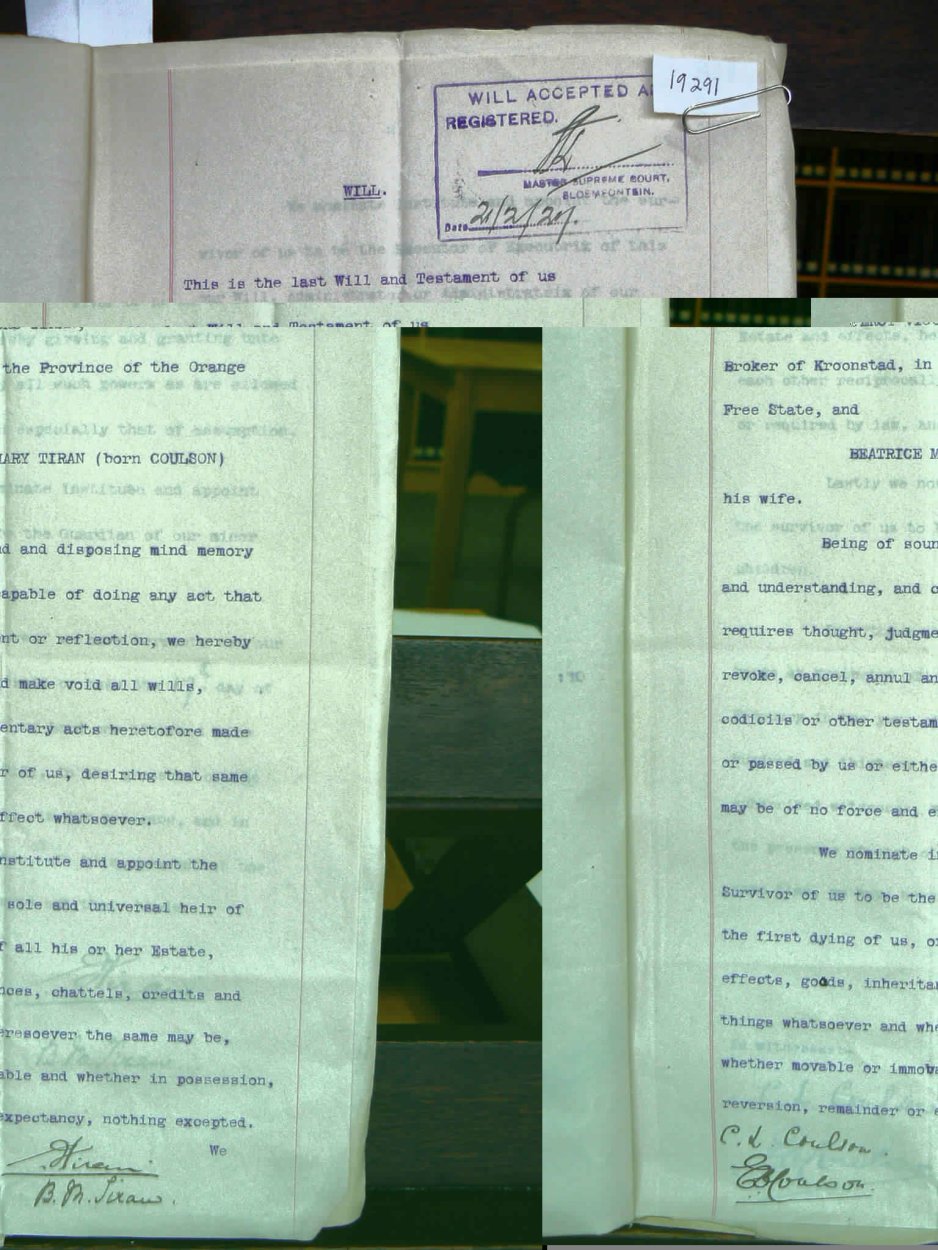 19291
WILL ACCEPTED A
REGISTERED.
MASTER SUPREME COURT,
BLOEMFONTEIN.
Date 21/2/27.
WILL.
This is the last Will and Testament of us
Will and Testament of us
the Province of the Orange
ARY TIRAN (born COULSON)
d and disposing mind memory
apable of doing any act that
nt or reflection, we hereby
d make void all wills,
entary acts heretofore made
r of us, desiring that same
ffect whatsoever.
nstitute and appoint the
sole and universal heir of
f all his or her Estate,
nces, chattels, credits and
eresoever the same may be,
able and whether in possession,
expectancy, nothing excepted.
We
B. M. Tiran.
Broker of Kroonstad, in
Free State, and
BEATRICE M
his wife.
Being of soun
and understanding, and c
requires thought, judgme
revoke, cancel, annul an
codicils or other testam
or passed by us or eithe
may be of no force and e
We nominate i
Survivor of us to be the
the first dying of us, o
effects, goods, inherita
things whatsoever and whe
whether movable or immova
reversion, remainder or e
C. L. Coulson.
E Coulson.